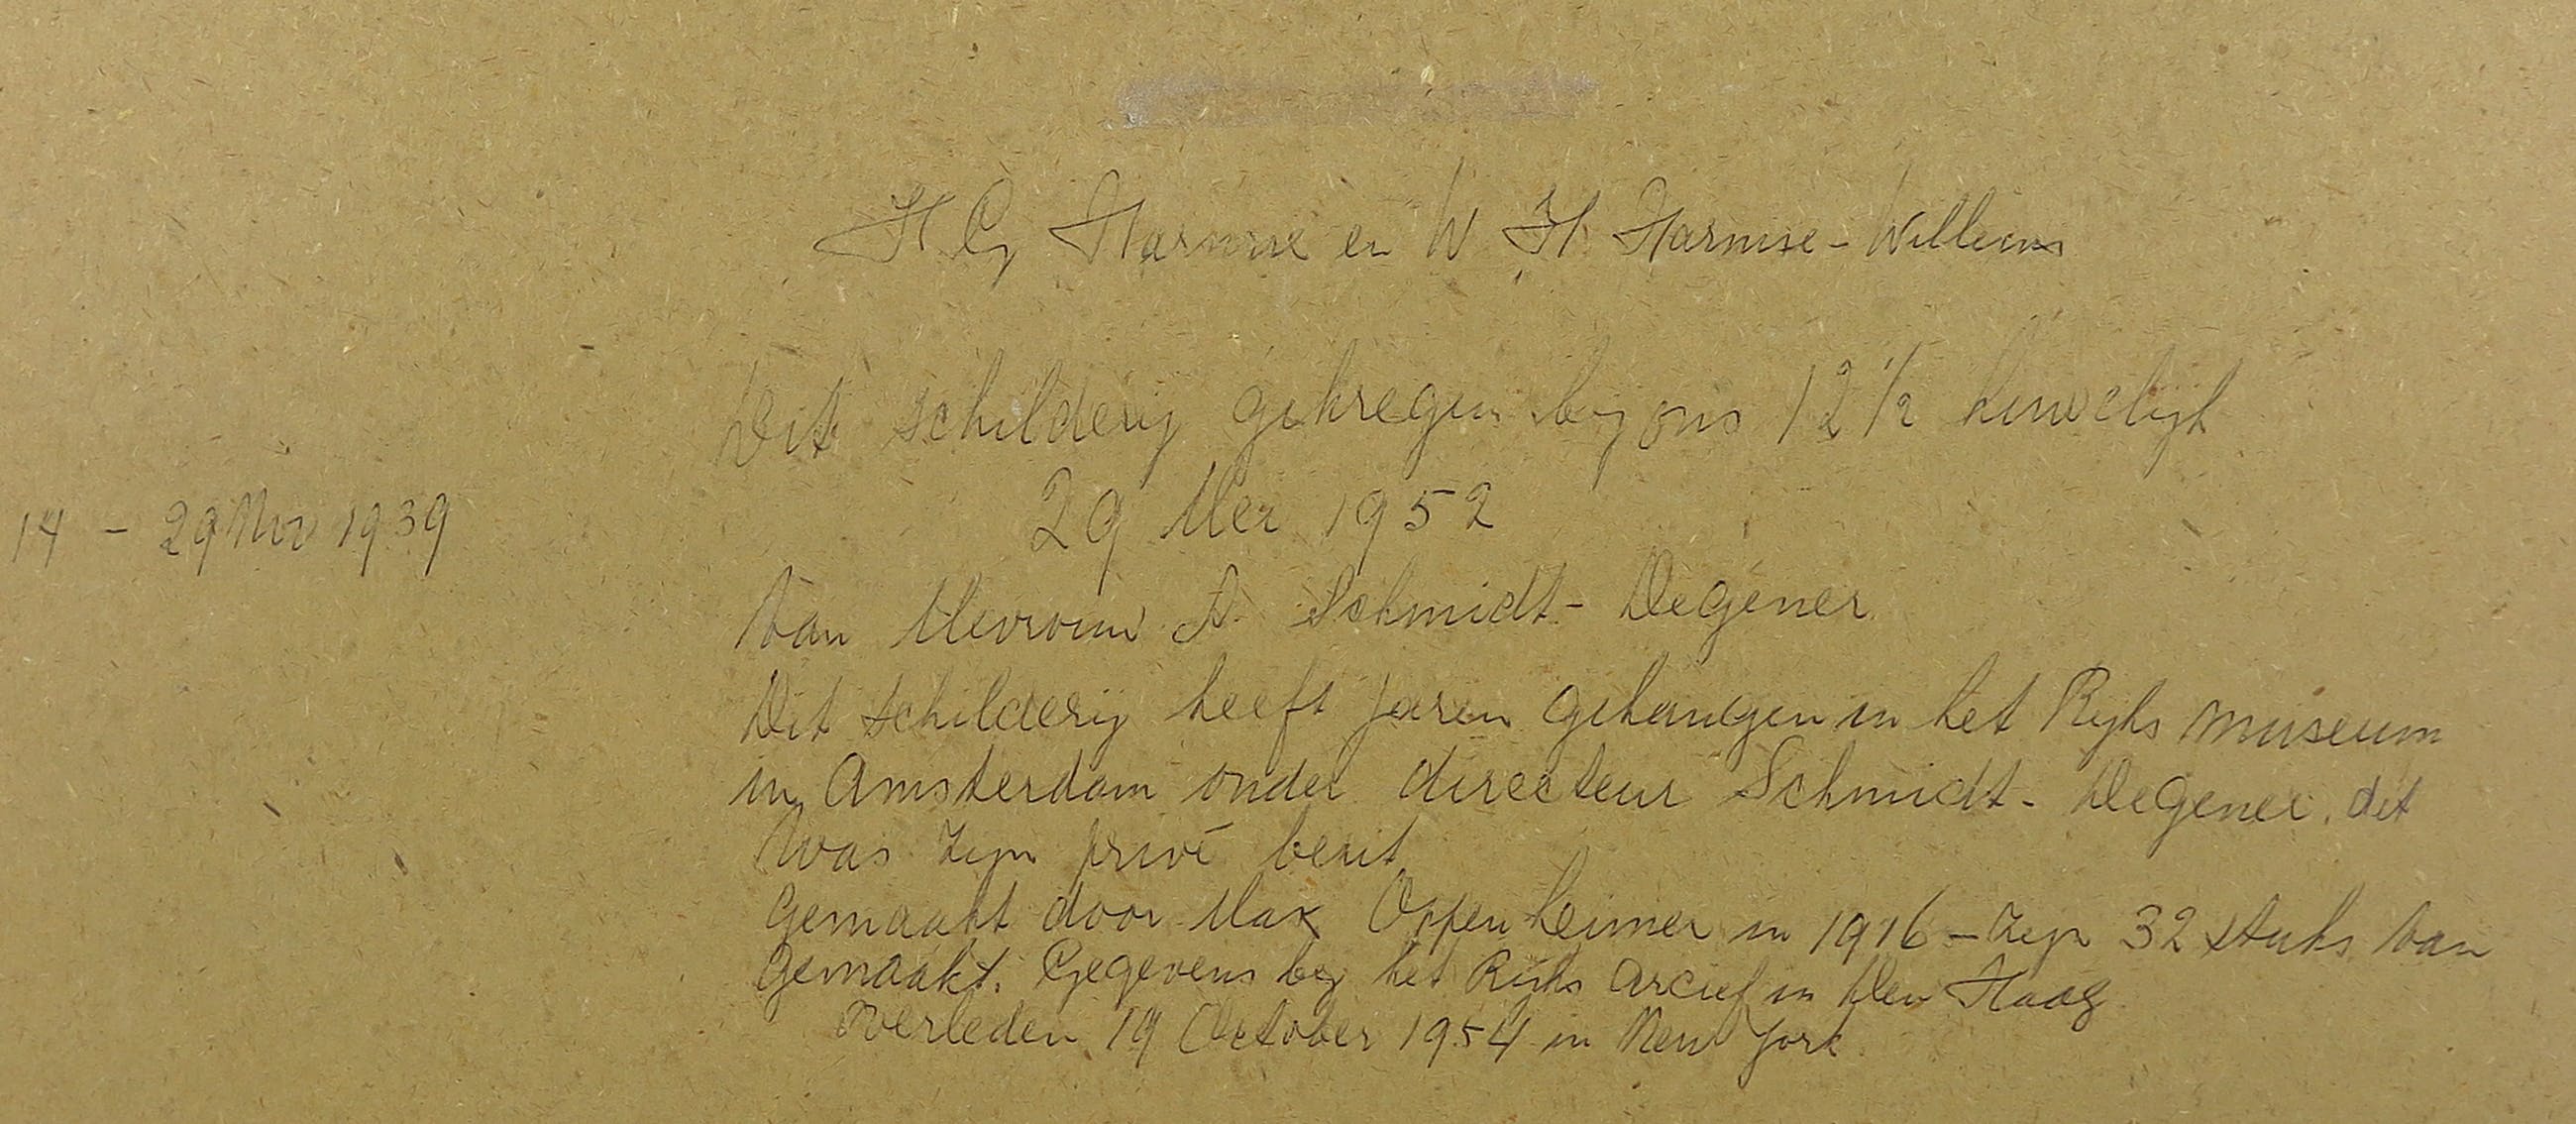 H G Harmse en W H Harmse-Willems
Dit schilderij gekregen bij ons 12 1/2 huwelijk
29 Mei 1952
14 - 29 Nov 1939
Van Mevrouw A. Schmidt-Degener
Dit schilderij heeft jaren gehangen in het Rijks museum
in Amsterdam onder directeur Schmidt-Degener. dit
Was zijn privé bezit
gemaakt door Max Oppenheimer in 1916 - zijn 32 stuks van
gemaakt. Gegevens bij het Rijks arcief in Den Haag
Overleden 19 October 1954 in New York